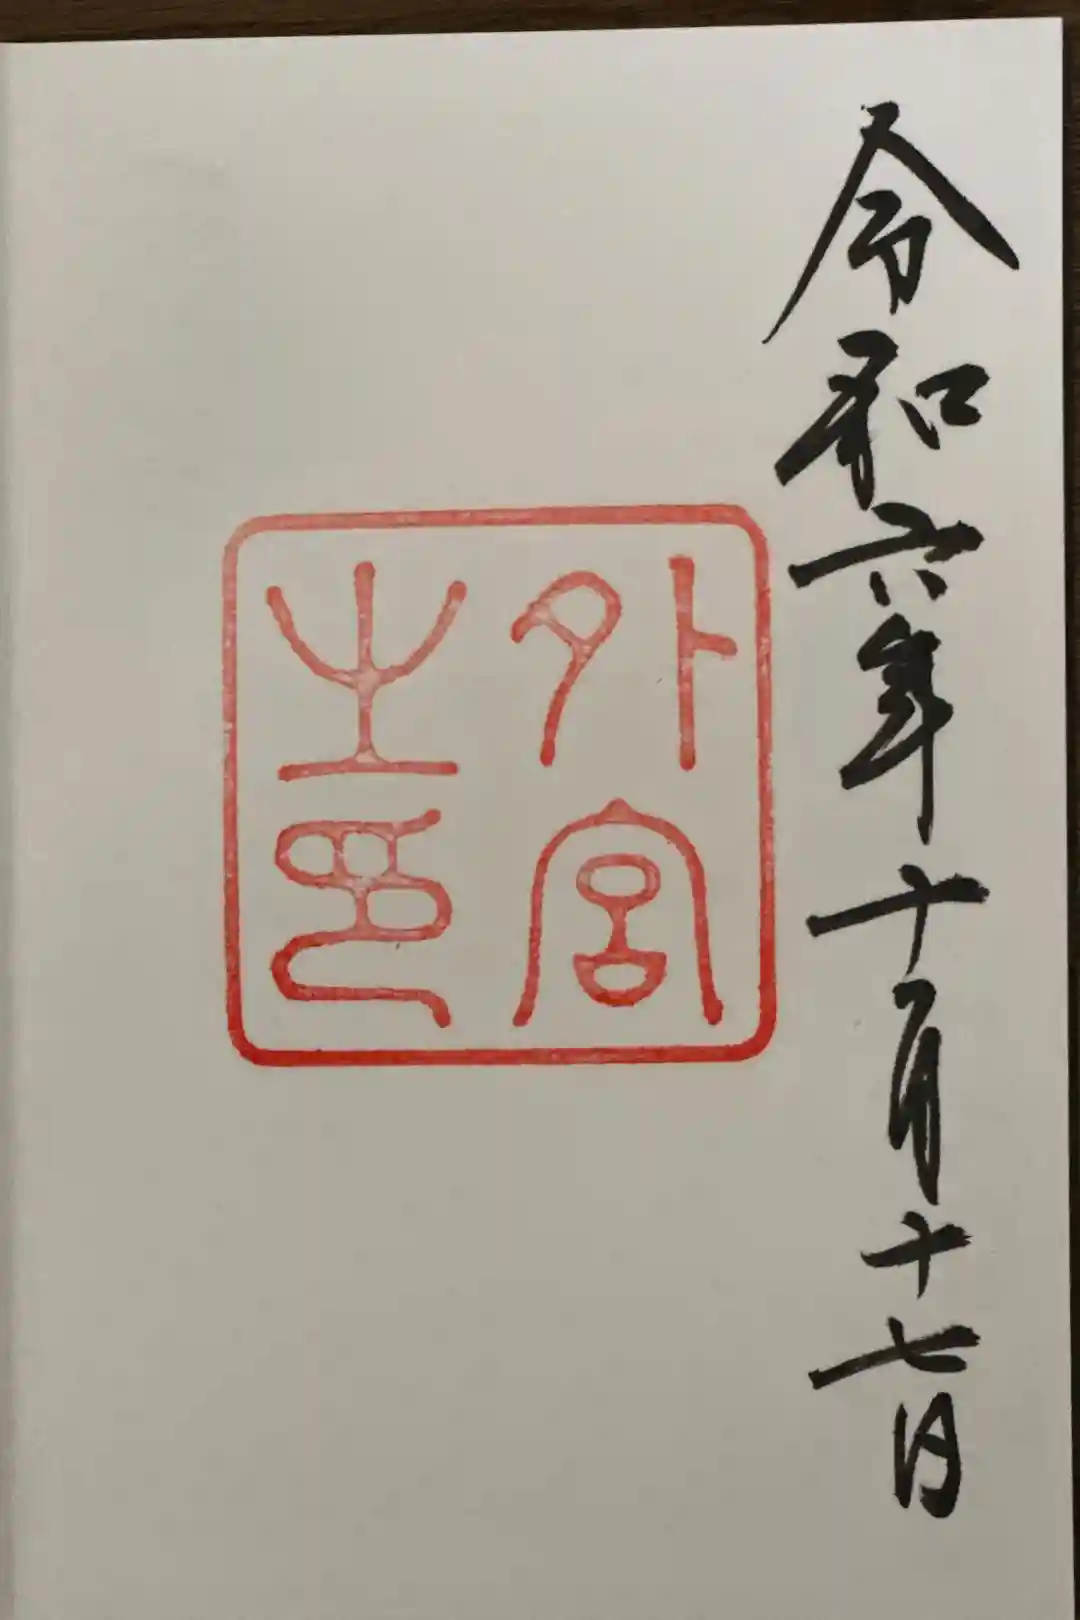 令和六年十月十七日
外宮
之印